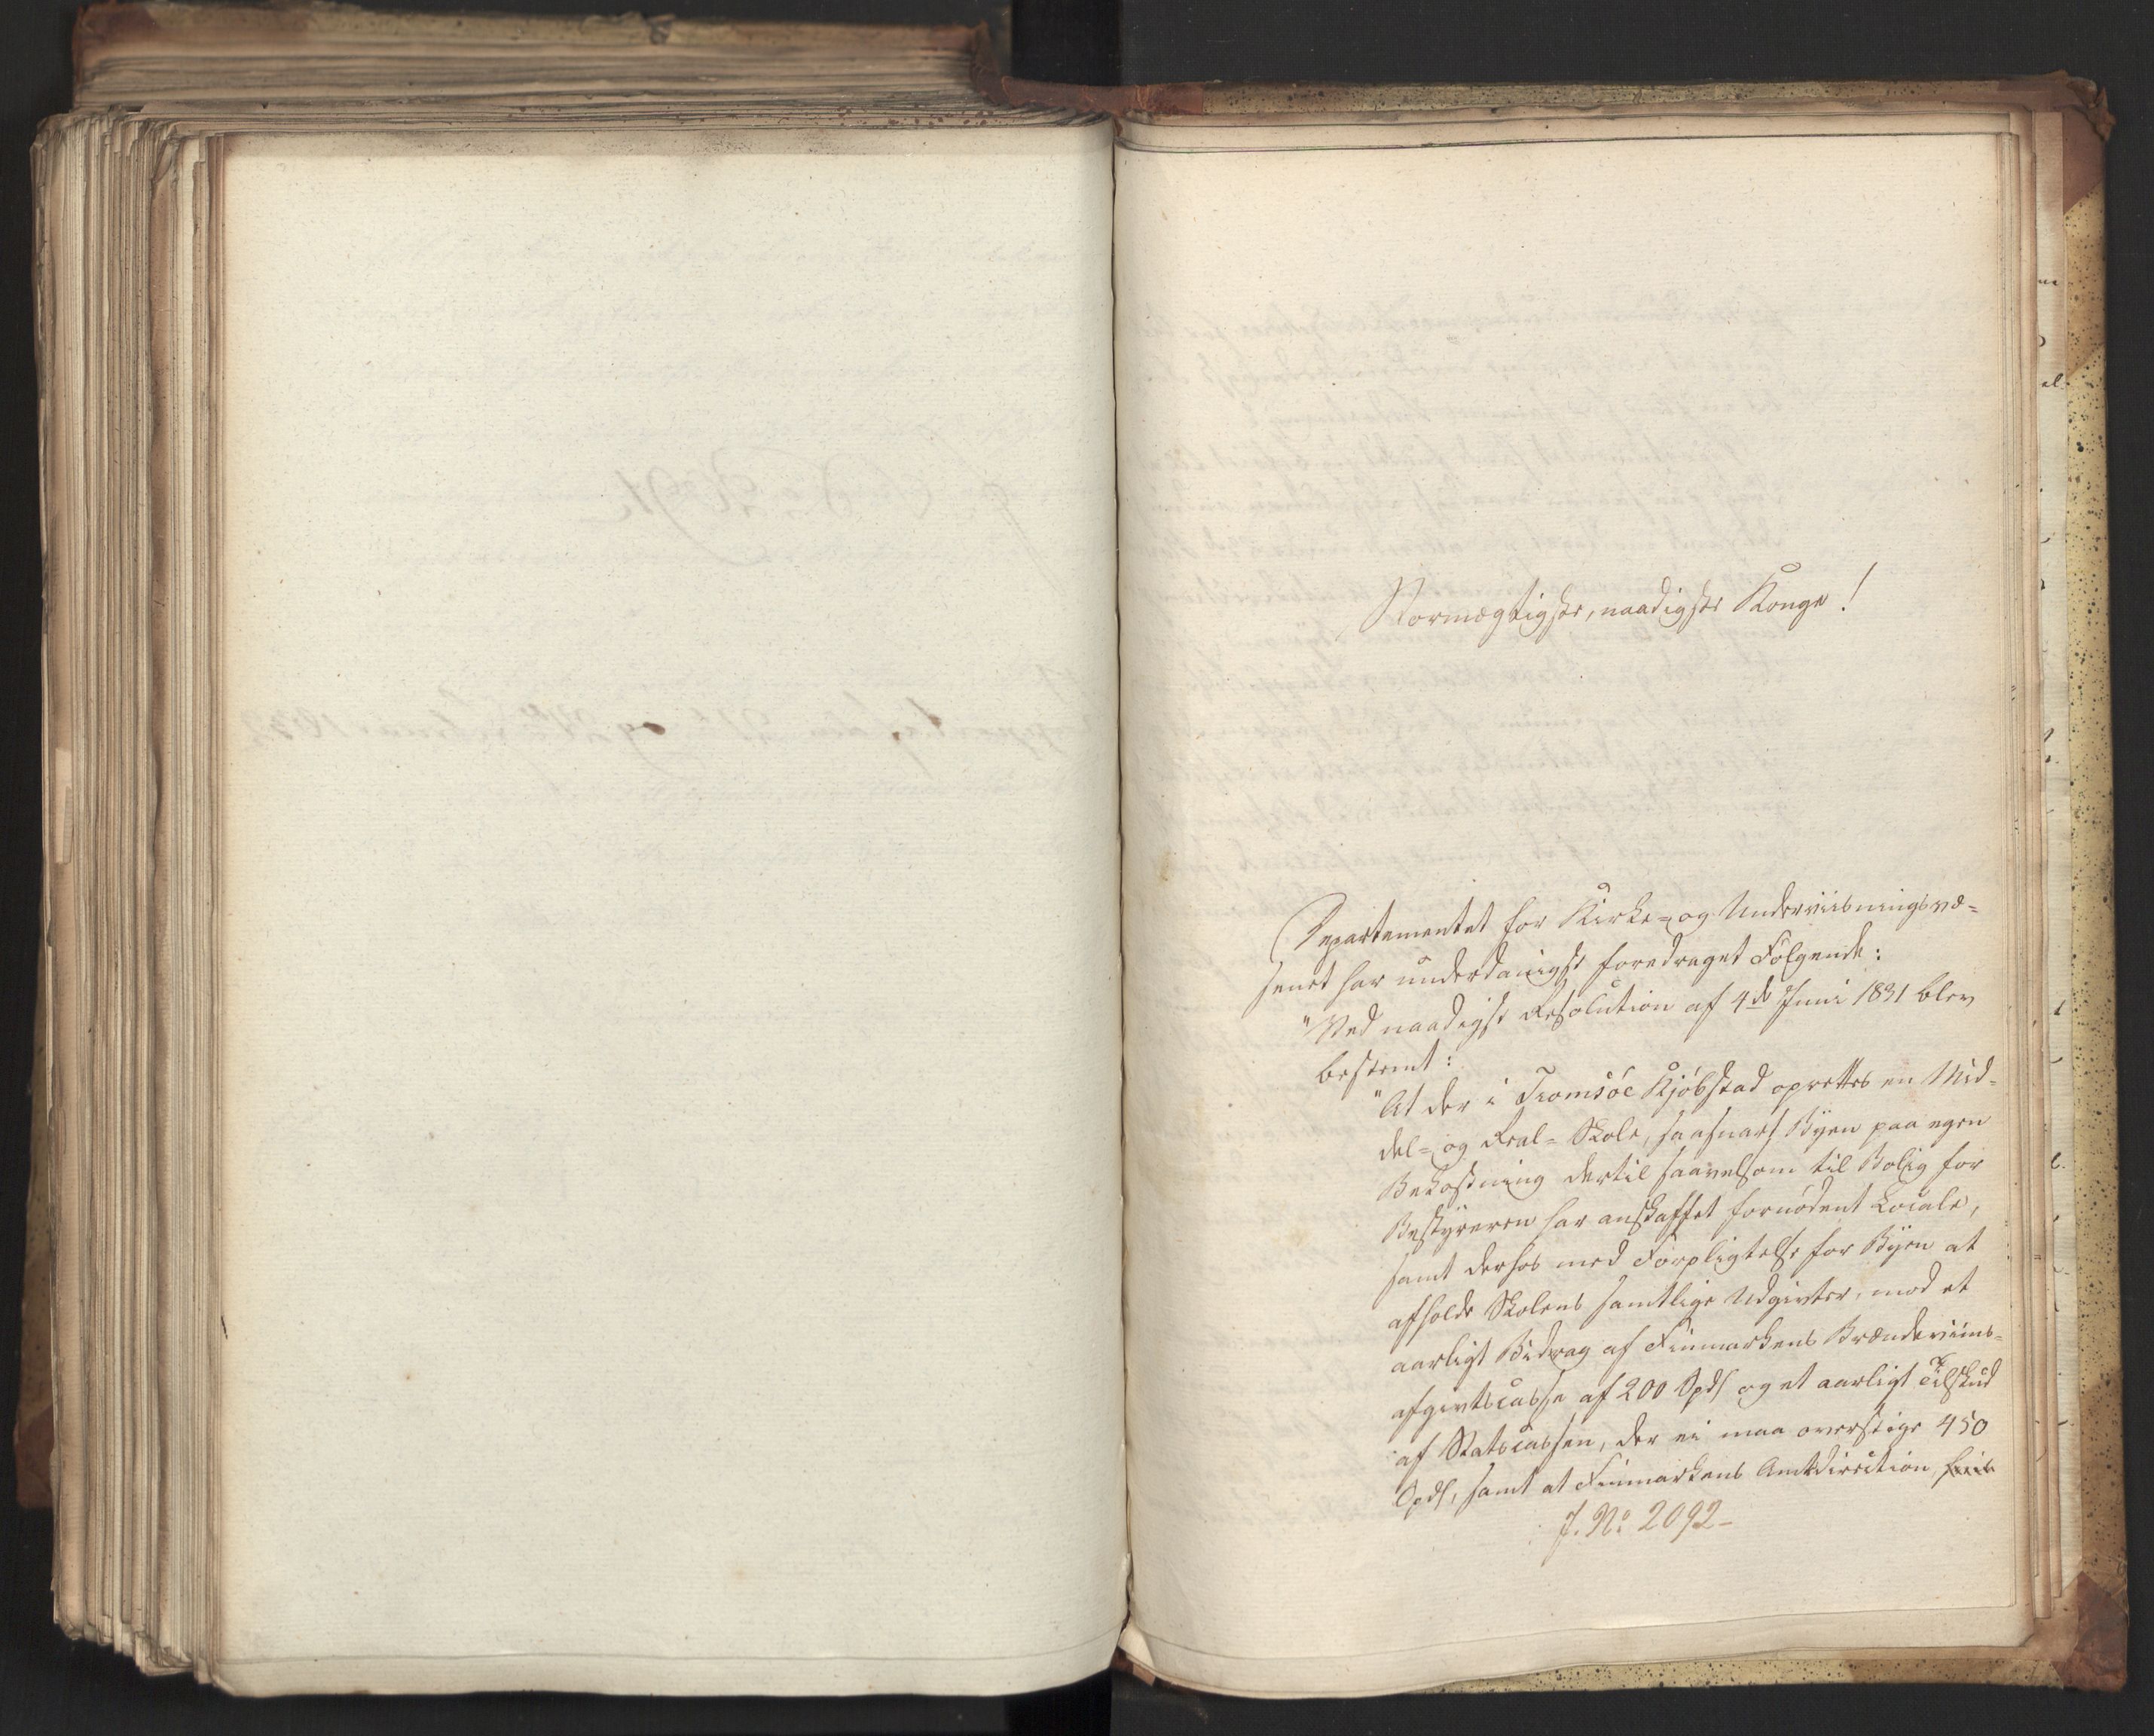 Stormægtigste, naadigste Konge!
Departementet for Kirke- og Underviisningsvæ-
senet har underdanigst foredraget Følgende:
"Ved naadigst Resolution af 4de Juni 1831 blev
bestemt:
"At der i Tromsöe Kjöbstad oprettes en Mid-
del- og Real-Skole, saasnart Byen paa egen
Bekostning dertil saavelsom til Bolig for
Bestyreren har anskaffet fornödent Locale,
samt derhos med Forpligtelse for Byen at
afholde Skolens samtlige Udgivter, mod et
aarligt Bidrag af Finmarkens Brændeviins-
afgivtscasse af 200 Spd og et aarligt Tilskud
af Statscassen, der ei maa overstige 450
Spd, samt at Finmarkens Amtsdirection
J. No 2092-